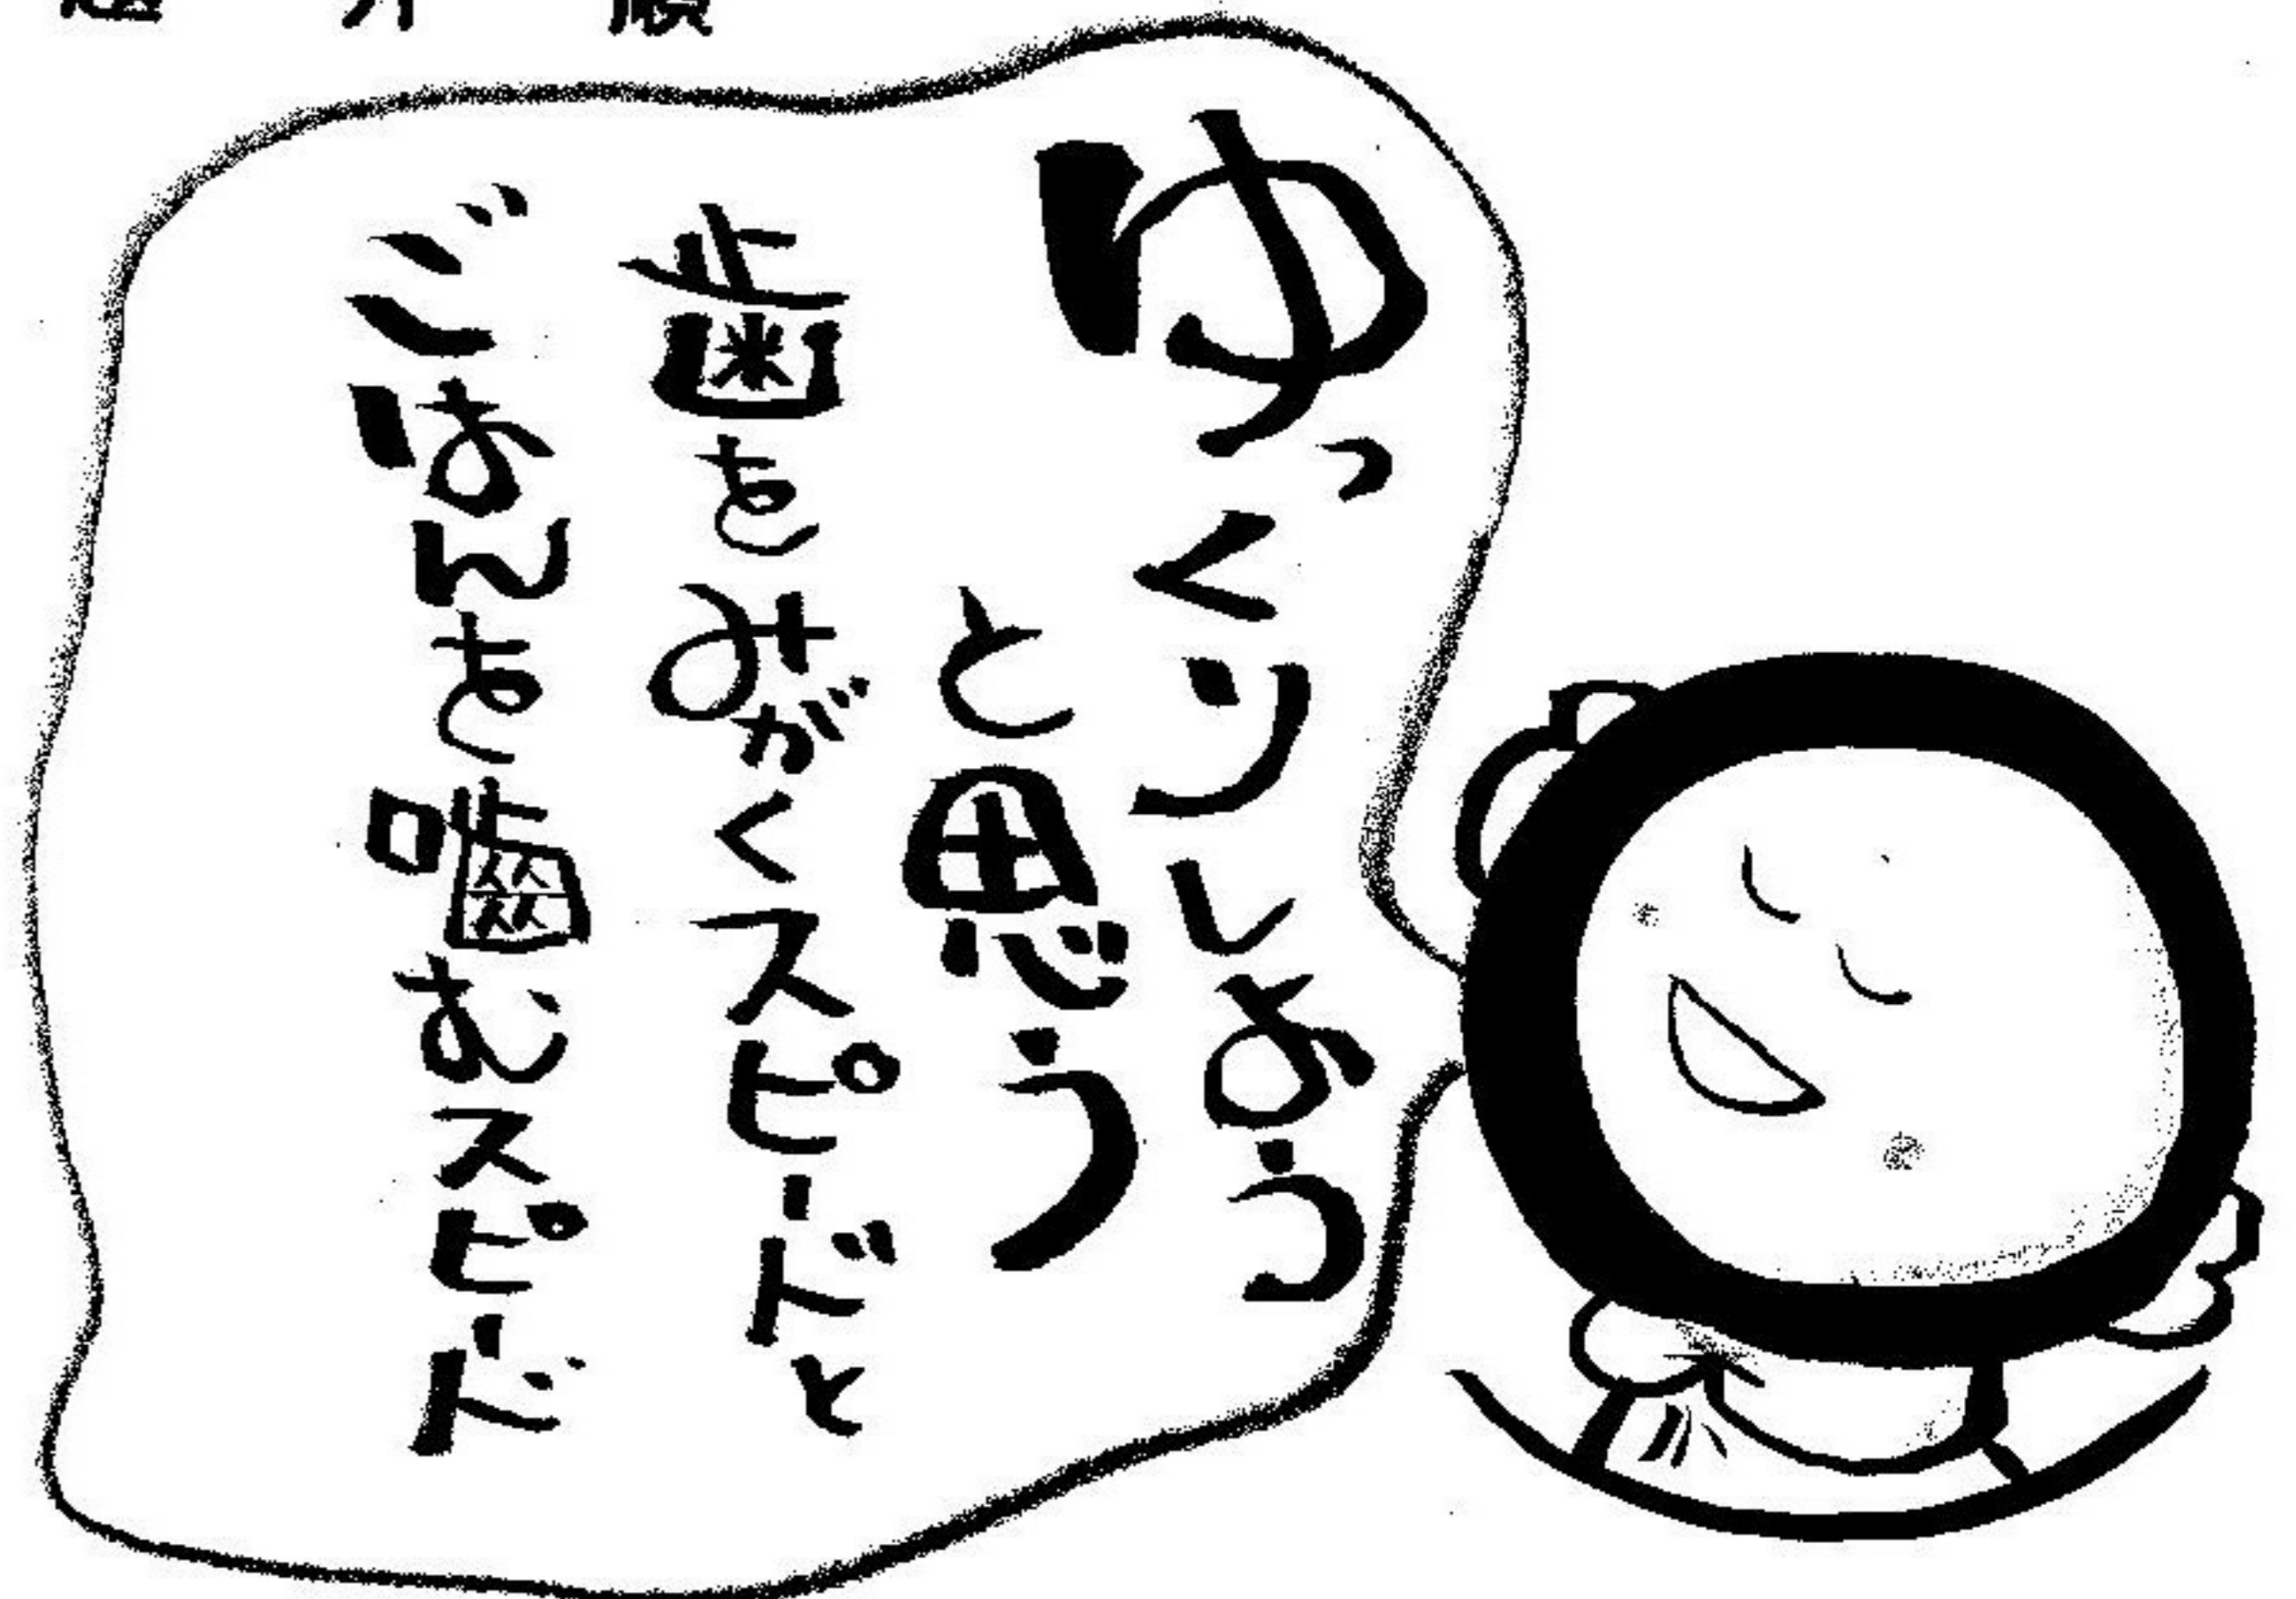 ゆっくりしよう
と思う
歯をみがくスピードと
ごはんを噛むスピード